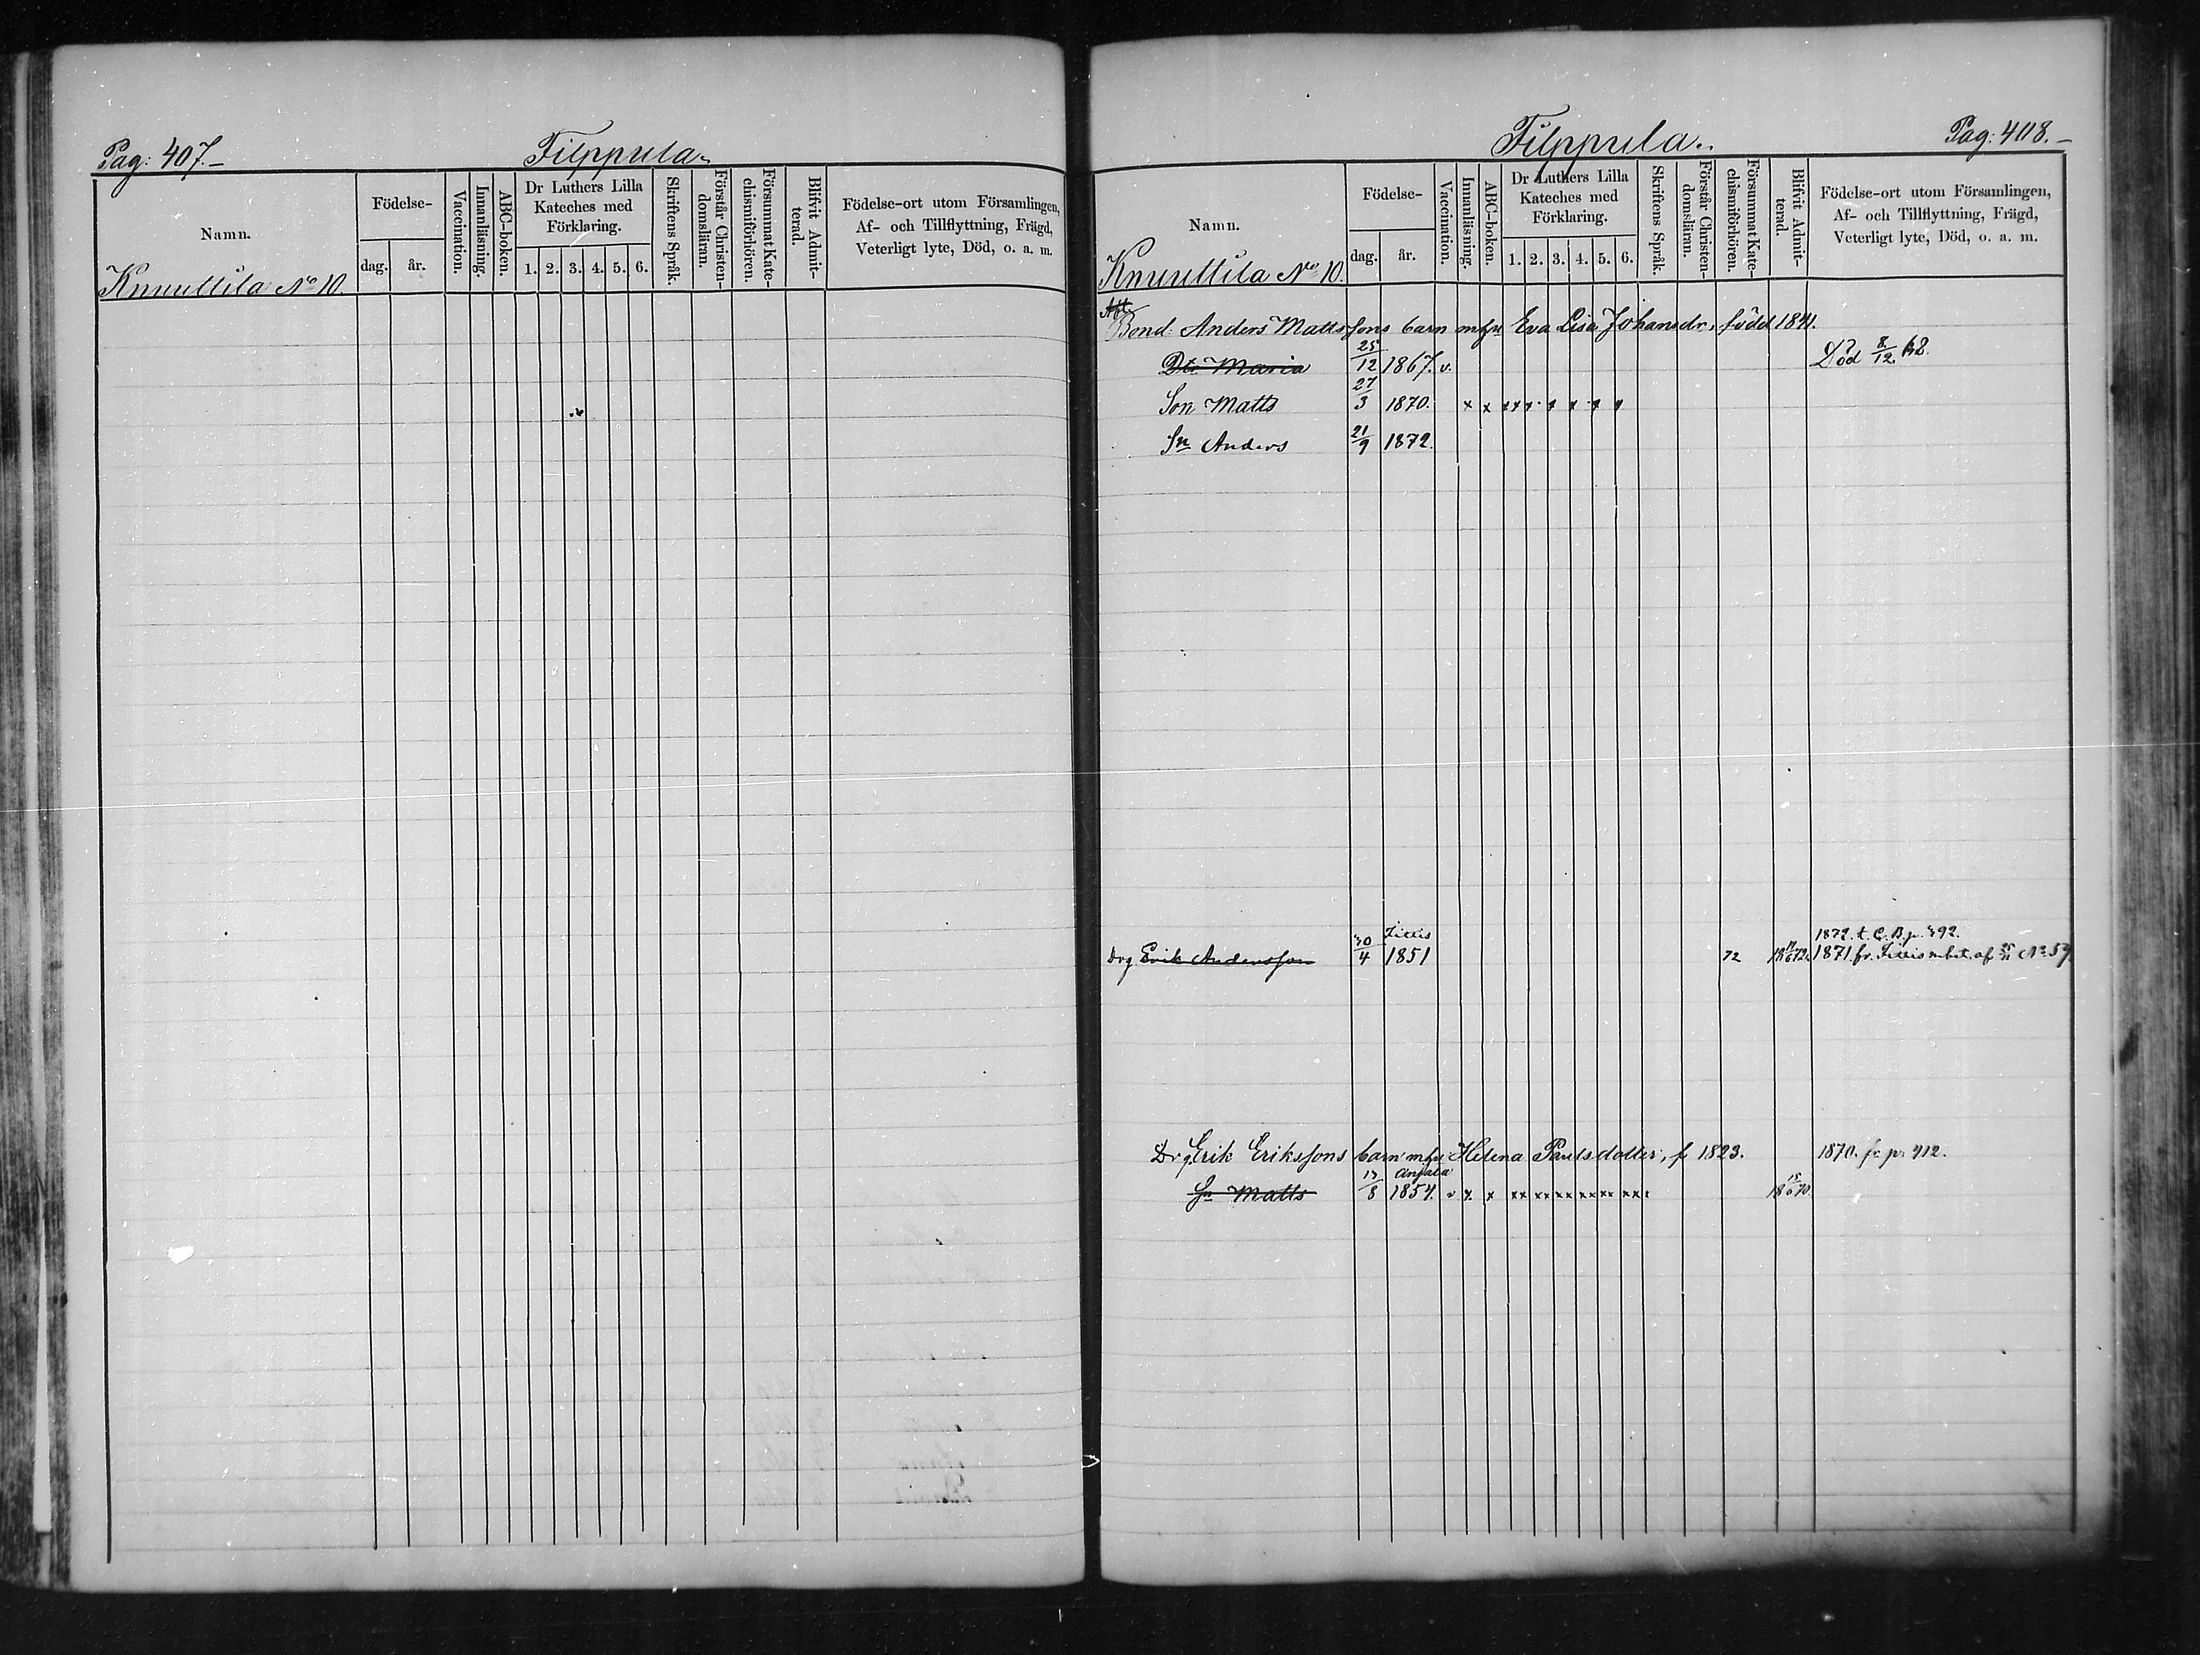 Pag: 407.–
Filppula.
Namn.
Födelse-
dag.
år.
Vaccination.
Innanläsning.
ABC-boken.
Dr Luthers Lilla
Kateches med
Förklaring.
1. 2. 3. 4. 5. 6.
Skriftens Språk.
Förstår Christen-
domsläran.
Försummat Kate-
chismiförhören.
Blifvit Admit-
terad.
Födelse-ort utom Församlingen,
Af- och Tillflyttning, Frägd,
Veterligt lyte, Död, o. a. m.
Knuuttila No 10.
Filppula.
Pag: 408.–
Namn.
Födelse-
dag.
år.
Vaccination.
Innanläsning.
ABC-boken.
Dr Luthers Lilla
Kateches med
Förklaring.
1. 2. 3. 4. 5. 6.
Skriftens Språk.
Förstår Christen-
domsläran.
Försummat Kate-
chismiförhören.
Blifvit Admit-
terad.
Födelse-ort utom Församlingen,
Af- och Tillflyttning, Frägd,
Veterligt lyte, Död, o. a. m.
Knuuttila No 10.
Bond: Anders Mattssons barn m hu Eva Lisa Johansdr, född 1841.
Dtr Maria 25/12 1867. v. Död 8/12 68.
Son Matts 27/3 1870. x x x x x x x x x
Sn Anders 21/9 1872.
Sittis 1872. t. C. B. p. 392.
Drg Erik Andersson 30/4 1851 72 1871. fr. Sittis m bet. af No 57
Drg Erik Erikssons barn m hu Helena Paulsdotter, f 1823. 1870. fr p. 412.
Anjala
Sn Matts 13/8 1854. v x x xx xx xx xx xx xx x